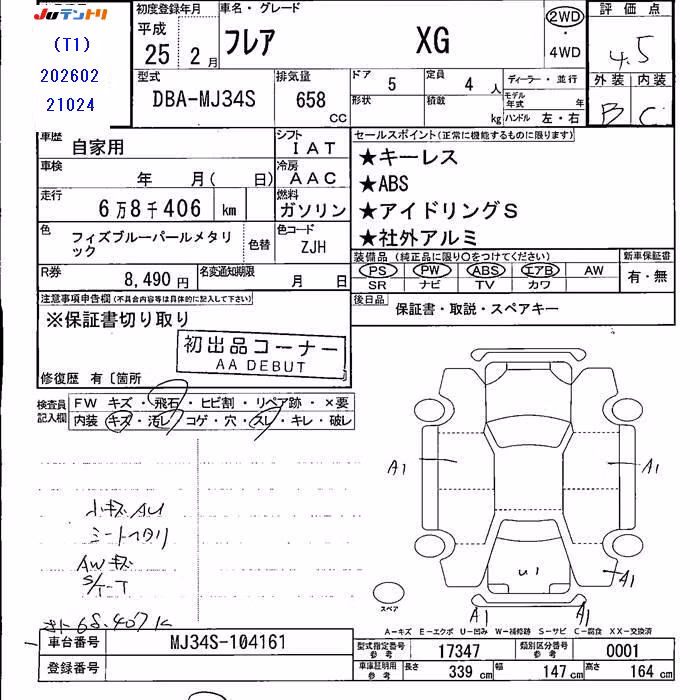 JUテントリ
(T1)
202602
21024
初度登録年月 車名・グレード
平成
25 2月
フレア XG
2WD
・
4WD
評価点
4.5
外装 内装
B C
型式
DBA-MJ34S
排気量
658 CC
ドア 5
定員 4 人
ディーラー・並行
形状
積載 kg
モデル年式 年
ハンドル 左・右
車歴
自家用
シフト
IAT
車検
年 月( 日)
冷房
AAC
走行
6万8千406 km
燃料
ガソリン
色
フィズブルーパールメタリ
ック
色替
色コード
ZJH
R券
8,490円
名変通知期限
月 日
セールスポイント(正常に機能するものに限ります)
★キーレス
★ABS
★アイドリングS
★社外アルミ
装備品 (純正品に限り○をつけてください)
PS PW ABS エアB AW
SR ナビ TV カワ
新車保証書
有・無
後日品
保証書・取説・スペアキー
注意事項申告欄(不具合内容等は具体的に記入して下さい)
※保証書切り取り
初出品コーナー
AA DEBUT
修復歴 有〔箇所
検査員
記入欄
FW キズ・飛石・ヒビ割・リペア跡・×要
内装 キズ・汚レ・コゲ・穴・スレ・キレ・破レ
小キズAU
シートヘタリ
AWキズ
S/T-T
68.407K
A1
A1
U1
A1
A1
A1
スペア
A-キズ E-エクボ U-凹み W-補修跡 S-サビ C-腐食 XX-交換済
車台番号
MJ34S-104161
登録番号
型式指定番号
参考
17347
類別区分番号
参考
0001
車庫証明用
参考
長さ 339 cm
幅 147 cm
高さ 164 cm